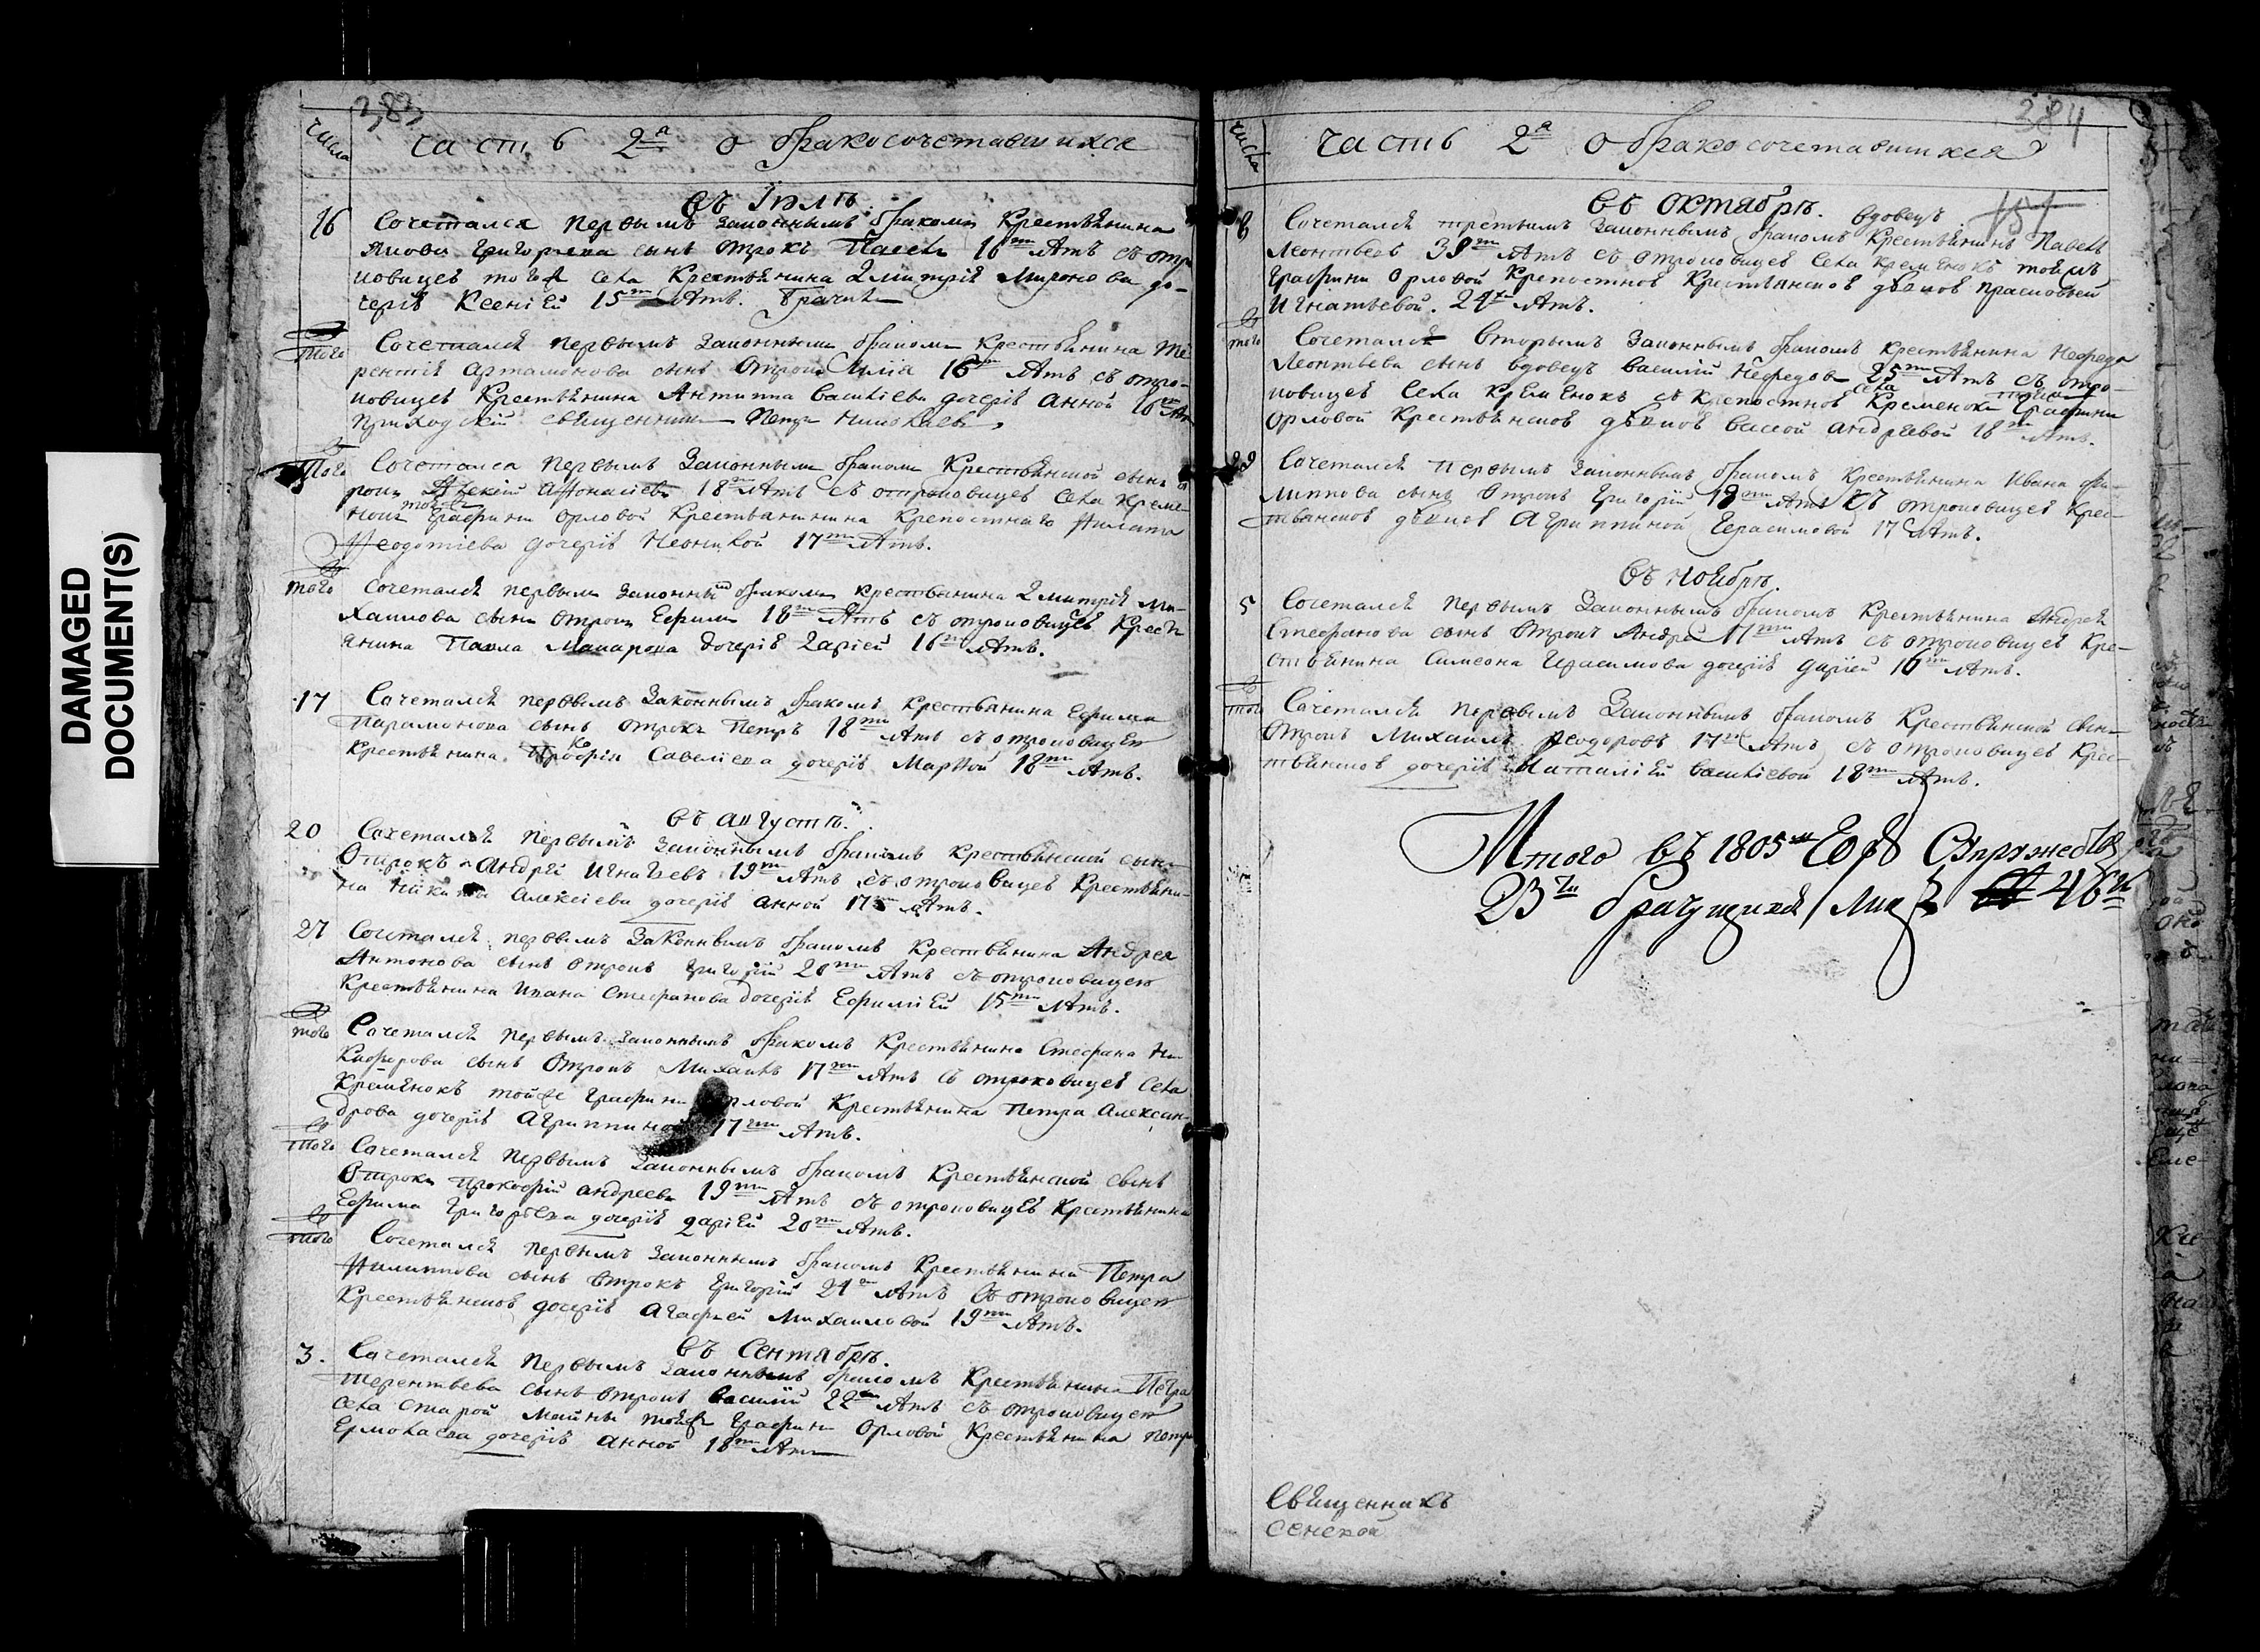 DAMAGED
DOCUMENT(S)
383
числа
часть 2а о бракосочетавшихся
въ Iюлѣ
16 Сочетался первымъ законнымъ бракомъ Крестьянина
Григорьева сынъ отрокъ 16ти лѣтъ съ отро
ковицею того села Крестьянина Дмитрiя Миронова до-
черiю Ксенiей 15ти лѣтъ.
того Сочетался первымъ законнымъ бракомъ Крестьянина Те
рентiя Артамонова сынъ отрокъ Илiя 16ти лѣтъ съ отро-
ковицею Крестьянина Антипа Васильева дочерiю Анной 16ти
Приходскiй священникъ Петръ Николаевъ
того Сочетался первымъ законнымъ бракомъ Крестьянской сынъ
рокъ Алексiй Афонасiевъ 18ти лѣтъ съ отроковицею села Креме
нокъ тойже Графини Орловой Крестьянина Крепостнаго
Феодотiева дочерiю Неонилой 17ти лѣтъ.
того сочетался первымъ законнымъ бракомъ крестьянина Дмитрiя Ми-
хаилова сынъ отрокъ Ефимъ 18ти лѣтъ съ отроковицею Кресть
янина Павла Макарова дочерiю Дарiей 16ти лѣтъ.
17 Сочетался первымъ законнымъ бракомъ Крестьянина Ефима
Парамонова сынъ отрокъ Петръ 18ти лѣтъ съ отроковицею
Крестьянина Прокофiя Савелiева дочерiю Марѳой 18ти лѣтъ.
въ августѣ.
20 Сочетался первымъ законнымъ бракомъ Крестьянской сынъ
Отрокъ Андрей Игнатьевъ 19ти лѣтъ съ отроковицею Крестьяни-
на Никиты Алексiева дочерiю Анной 17 лѣтъ.
27 Сочетался первымъ законнымъ бракомъ Крестьянина Андрея
Антонова сынъ отрокъ Григорiй 20ти лѣтъ съ отроковицею
Крестьянина Ивана Стефанова дочерiю Ефимiей 15ти лѣтъ.
того Сочетался первымъ законнымъ бракомъ Крестьянина Стефана Ни
кифорова сынъ отрокъ Михаилъ 17ти лѣтъ съ отроковицею села
Кременокъ тойже Графини Орловой Крестьянина Петра Алексан-
дрова дочерiю Агриппиной 17ти лѣтъ.
того Сочетался первымъ законнымъ бракомъ Крестьянской сынъ
Отрокъ Прокофiй Андреевъ 19ти лѣтъ съ отроковицею Крестьянина
Ефима Григорьева дочерiю Дарiей 20ти лѣтъ.
того Сочетался первымъ законнымъ бракомъ Крестьянина Петра
Филиппова сынъ отрокъ Григорiй 21 лѣтъ съ отроковицею
Крестьянской дочерiю Агафiей Михаиловой 19ти лѣтъ.
въ Сентябрѣ.
3. Сочетался первымъ законнымъ бракомъ Крестьянина Петра
Терентьева сынъ отрокъ Василiй 22 лѣтъ съ отроковицею
села Старой Майны тойже Графини Орловой Крестьянина Петра
Ермолаева дочерiю Анной 18ти лѣтъ
384
числа
часть 2а о бракосочетавшихся
151
въ Октябрѣ.
8 Сочетался третьимъ законнымъ бракомъ вдовецъ Крестьянинъ Павелъ
Леонтьевъ 39ти лѣтъ съ отроковицею села Кременокъ тойже
Графини Орловой Крепостной Крестьянской дѣвкой Прасковьей
Игнатьевой. 24хъ лѣтъ.
того Сочетался вторымъ законнымъ бракомъ крестьянина Нефеда
Леонтьева сынъ вдовецъ Василiй Нефедовъ 25ти лѣтъ съ отро-
ковицею села Кременокъ съ крепостной села Кременокъ тойже Графини
Орловой Крестьянской дѣвкой Вассой Андреевой 18ти лѣтъ.
29 Сочетался первымъ законнымъ бракомъ Крестьянина Ивана Фи-
липпова сынъ отрокъ Григорiй 18ти лѣтъ съ отроковицею Крес-
тьянской дѣвкой Агриппиной Герасимовой 17 лѣтъ.
въ Ноябрѣ.
5 Сочетался первымъ законнымъ бракомъ Крестьянина Андрея
Стефанова сынъ отрокъ Андрей 17ти лѣтъ съ отроковицею Кре-
стьянина Симеона Герасимова дочерiю Дарiей 16ти лѣтъ.
того Сочетался первымъ законнымъ бракомъ Крестьянской сынъ
отрокъ Михаилъ Ѳеодоровъ 17ти лѣтъ съ отроковицею Крес-
тьянской дочерiю Наталiей Васильевой 18ти лѣтъ.
Итого въ 1805м Году Супружествъ
23 брачущихся лицъ 46ть
Священникъ